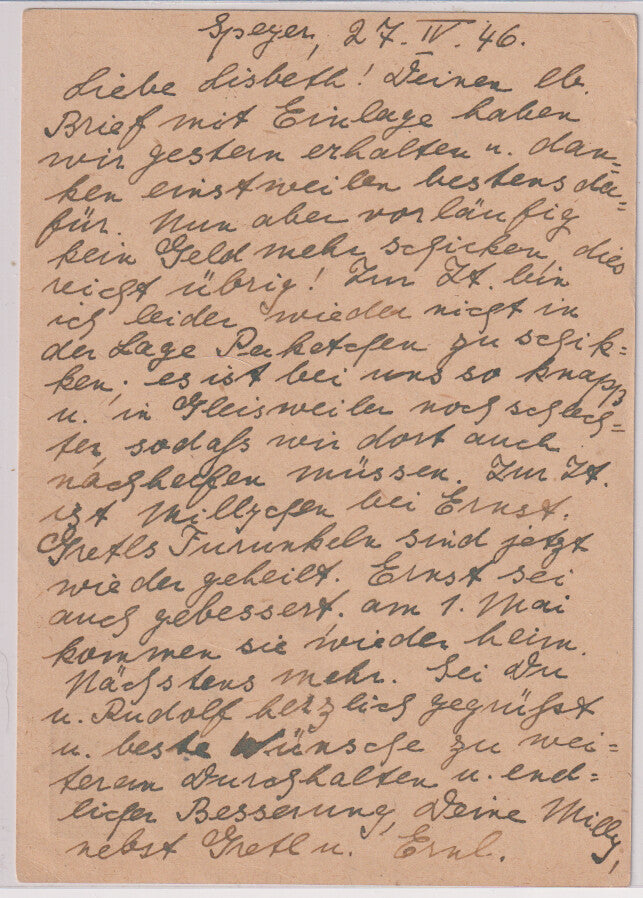 Speyer, 27. IV. 46.
Liebe Lisbeth! Deinen lb.
Brief mit Einlage haben
wir gestern erhalten u. dan=
ken einstweilen bestens da=
für. Nun aber vorläufig
kein Geld mehr schicken, dies
reicht übrig! Zur Zt. bin
ich leider wieder nicht in
der Lage Paketchen zu schik=
ken; es ist bei uns so knapp
u. in Gleisweiler noch schlech=
ter, sodaß wir dort auch
nachhelfen müssen. Zur Zt.
ist Millychen bei Ernst.
Gretls Furunkeln sind jetzt
wieder geheilt. Ernst sei
auch gebessert. am 1. Mai
kommen sie wieder heim.
Nächstens mehr. Sei Du
u. Rudolf herzlich gegrüßt
u. beste Wünsche zu wei=
terem Durchhalten u. end=
licher Besserung, Deine Milly,
nebst Gretl u.